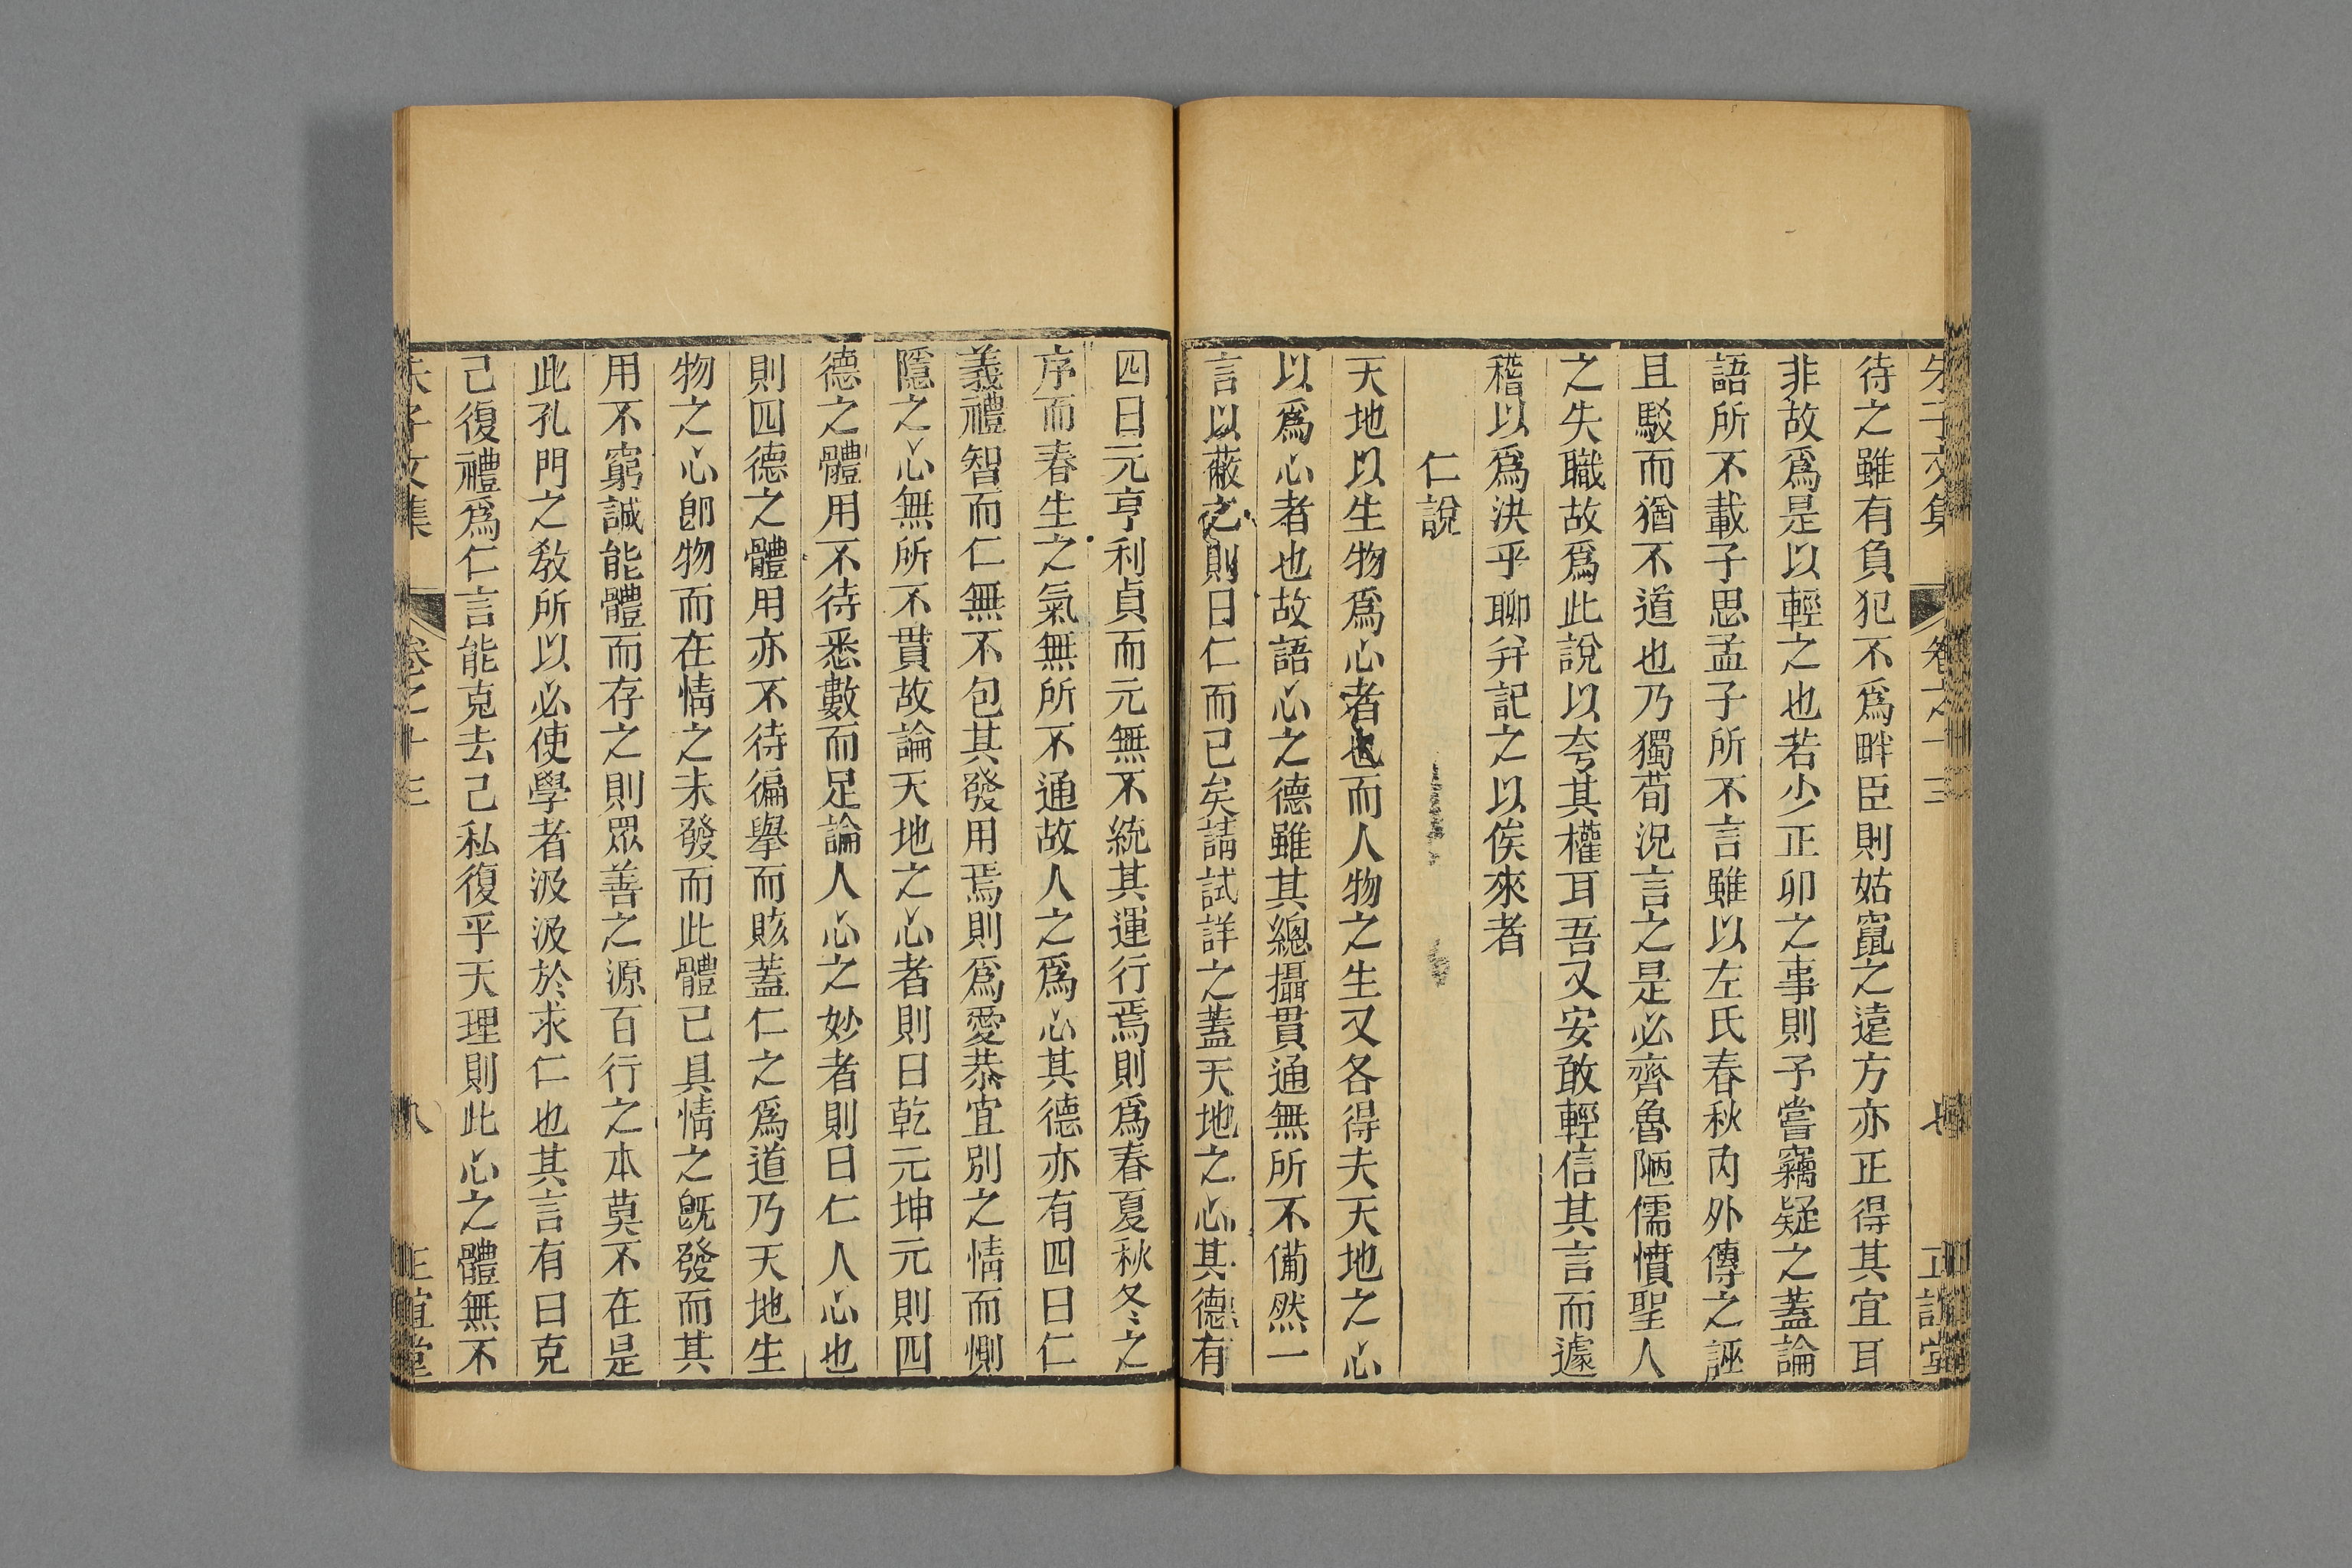 朱子文集 卷之十三 七 正誼堂
待之雖有負犯不爲畔臣則姑竄之遠方亦正得其宜耳
非故爲是以輕之也若少正卯之事則予嘗竊疑之蓋論
語所不載子思孟子所不言雖以左氏春秋内外傳之誣
且駁而猶不道也乃獨荀况言之是必齊魯陋儒憤聖人
之失職故爲此說以夸其權耳吾又安敢輕信其言而遽
稽以爲決乎聊并記之以俟來者
仁說
天地以生物爲心者也而人物之生又各得夫天地之心
以爲心者也故語心之德雖其總攝貫通無所不備然一
言以蔽之則曰仁而已矣請試詳之蓋天地之心其德有
四曰元亨利貞而元無不統其運行焉則爲春夏秋冬之
序而春生之氣無所不通故人之爲心其德亦有四曰仁
義禮智而仁無不包其發用焉則爲愛恭宜別之情而惻
隱之心無所不貫故論天地之心者則曰乾元坤元則四
德之體用不待悉數而足論人心之妙者則曰仁人心也
則四德之體用亦不待徧舉而賅蓋仁之爲道乃天地生
物之心卽物而在情之未發而此體已具情之旣發而其
用不窮誠能體而存之則眾善之源百行之本莫不在是
此孔門之教所以必使學者汲汲於求仁也其言有曰克
己復禮爲仁言能克去己私復乎天理則此心之體無不
朱子文集 卷之十三 八 正誼堂